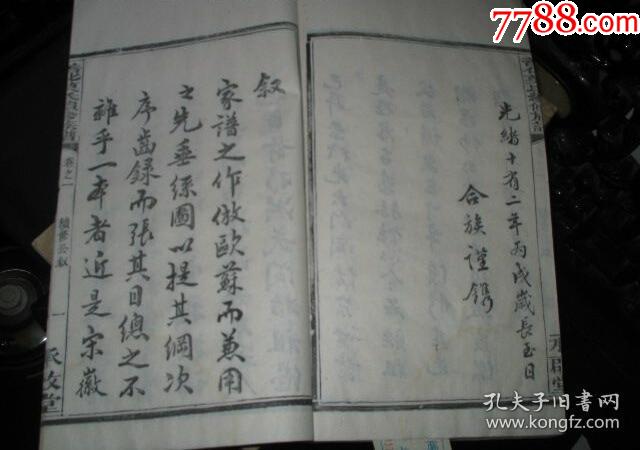 7788.com
光緒十有二年丙戌歲長至日
合族謹鐫
叙
家譜之作倣歐蘇而兼用
之先垂絲圖以提其綱次
序齒錄而張其目總之不
離乎一本者近是宗徽
卷之一
續修公叙
一
承啟堂
孔夫子旧书网
kongfz.com